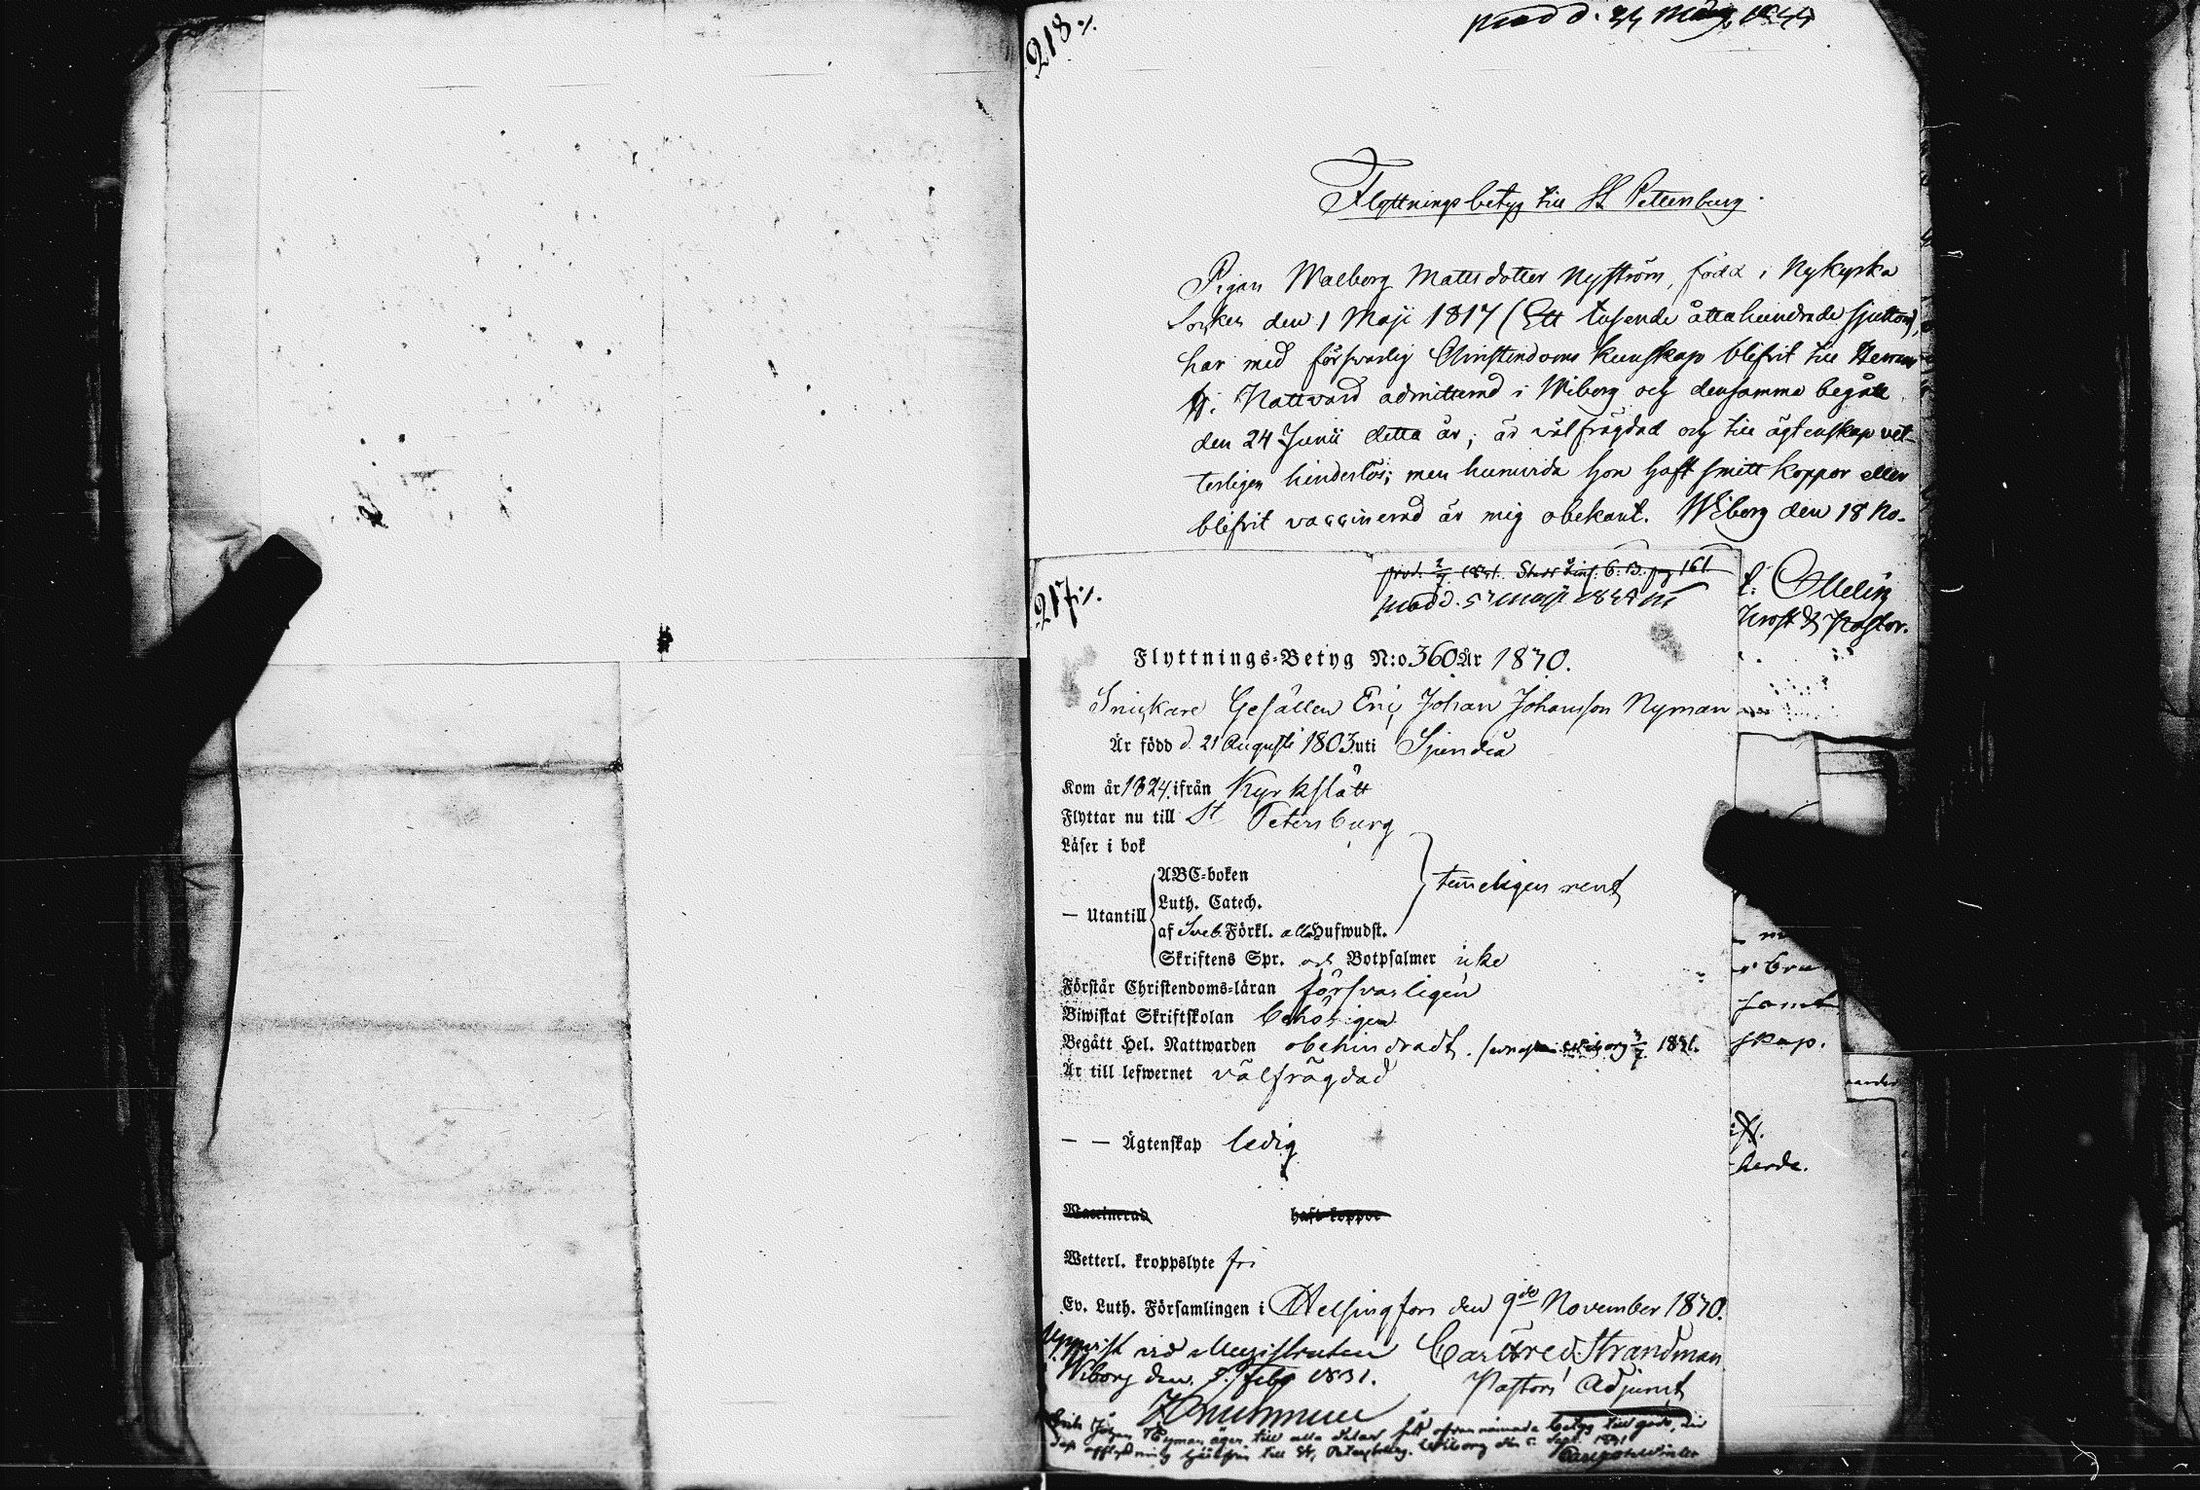 218 ./.
prod d. 24 1844
Flyttningsbetyg till St Petersburg.
Pigan Walborg Mattsdotter Nyström, född i Nykyrka
Socken den 1 Maji 1817 (Ett tusende åttahundrade sjutton),
har med förswarlig Christendoms kunskap blifvit till Herrans
H. Nattvard admitterad i Wiborg och densamma begått
den 24 Junii detta år; är välfrägdad och till ägtenskap vet-
terligen hinderlös; men huruvida hon haft smitt koppor eller
blifvit vaccinerad är mig obekant. Wiborg den 18 No-
Prost & Pastor.
217 ./.
prod. 1831. pag 161.
prod d. 5 maji
Flyttnings-Betyg N:o 360 År 1830.
Snickare Gesällen Eric Johan Johansson Nyman
Är född d. 21 Augusti 1803 uti Sjundeå
Kom år 1824 ifrån Kyrkslätt
Flyttar nu till St Petersburg
Läser i bok
ABC-boken
Luth. Catech.
— Utantill
af Sveb. Förkl. alla Hufwudst.
temeligen rent
Skriftens Spr. och Botpsalmer icke
Förstår Christendoms-läran försvarligen
Biwistat Skriftskolan behörigen
Begått Hel. Nattwarden obehindradt. 1831.
Är till lefwernet välfrägdad
— — Ägtenskap ledig
Waccinerad haft koppor
Wetterl. kroppslyte fri
Ev. Luth. Församlingen i Helsingfors den 9de November 1830.
Uppvist vid Magistraten
Wiborg den Feb. 1831.
Strandman
Pastors Adjunct
Nyman, äger till alla delar ofvannämnde betyg till godo,
till St. Petersburg. Wiborg den Sept. 1831
samt
skap.